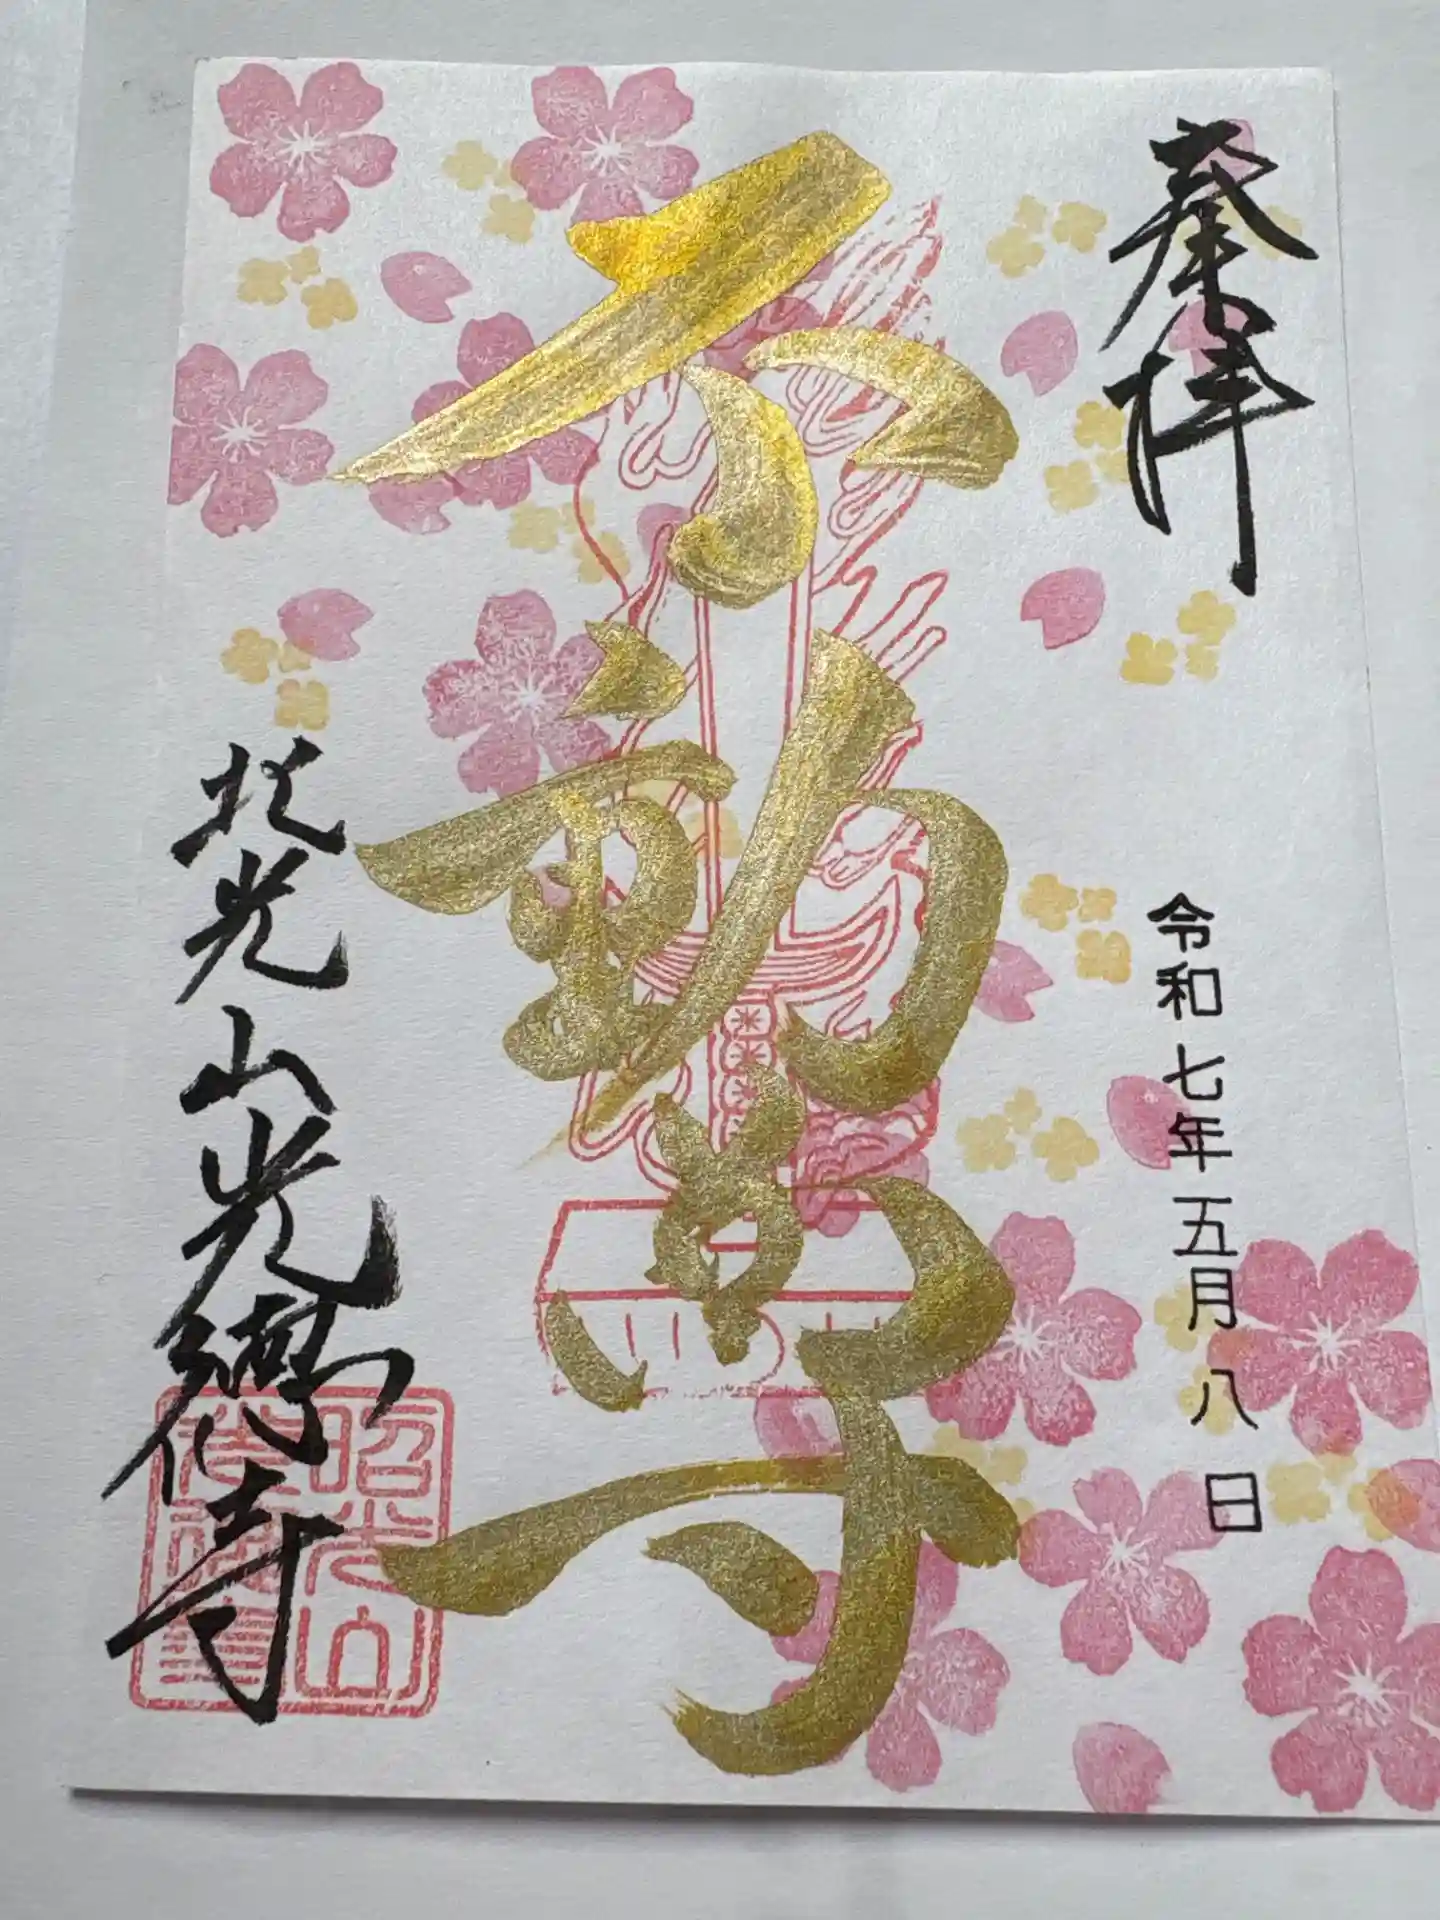 奉拝
令和七年五月八日
不動尊
北光山光寺